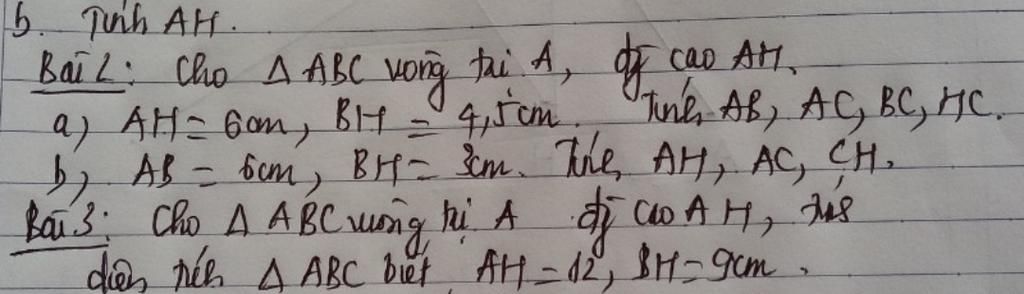 b. Tính AH.
Bài 2: Cho Δ ABC vuông tại A, đg cao AH.
a) AH = 6cm, BH = 4,5cm. Tính AB, AC, BC, HC.
b, AB = 6cm, BH = 3cm. Tính AH, AC, CH.
Bài 3: Cho Δ ABC vuông tại A đg cao AH, tính
diện tích Δ ABC biết AH = 12, BH = 9cm.